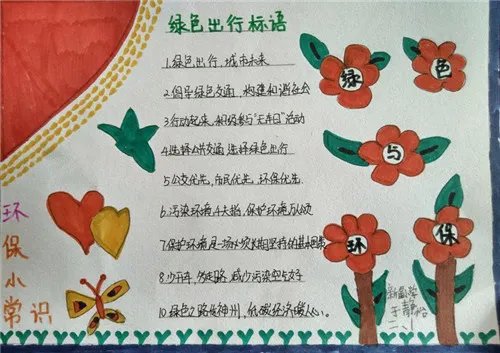 绿色出行标语
1.绿色出行,城市未来
2.倡导绿色交通,构建和谐社会
3.行动起来,积极参与"无车日"活动
4.选择公共交通 选择绿色出行
5.公交优先,市民优先,环保优先.
6.污染环境 保护环境
7.保护环境是一场 长期坚持的
8.少开车,多走路,减少污染空气好
10.绿色之路 神州,低碳经济暖人心.
绿
色
与
环
保
环
保
小
常识